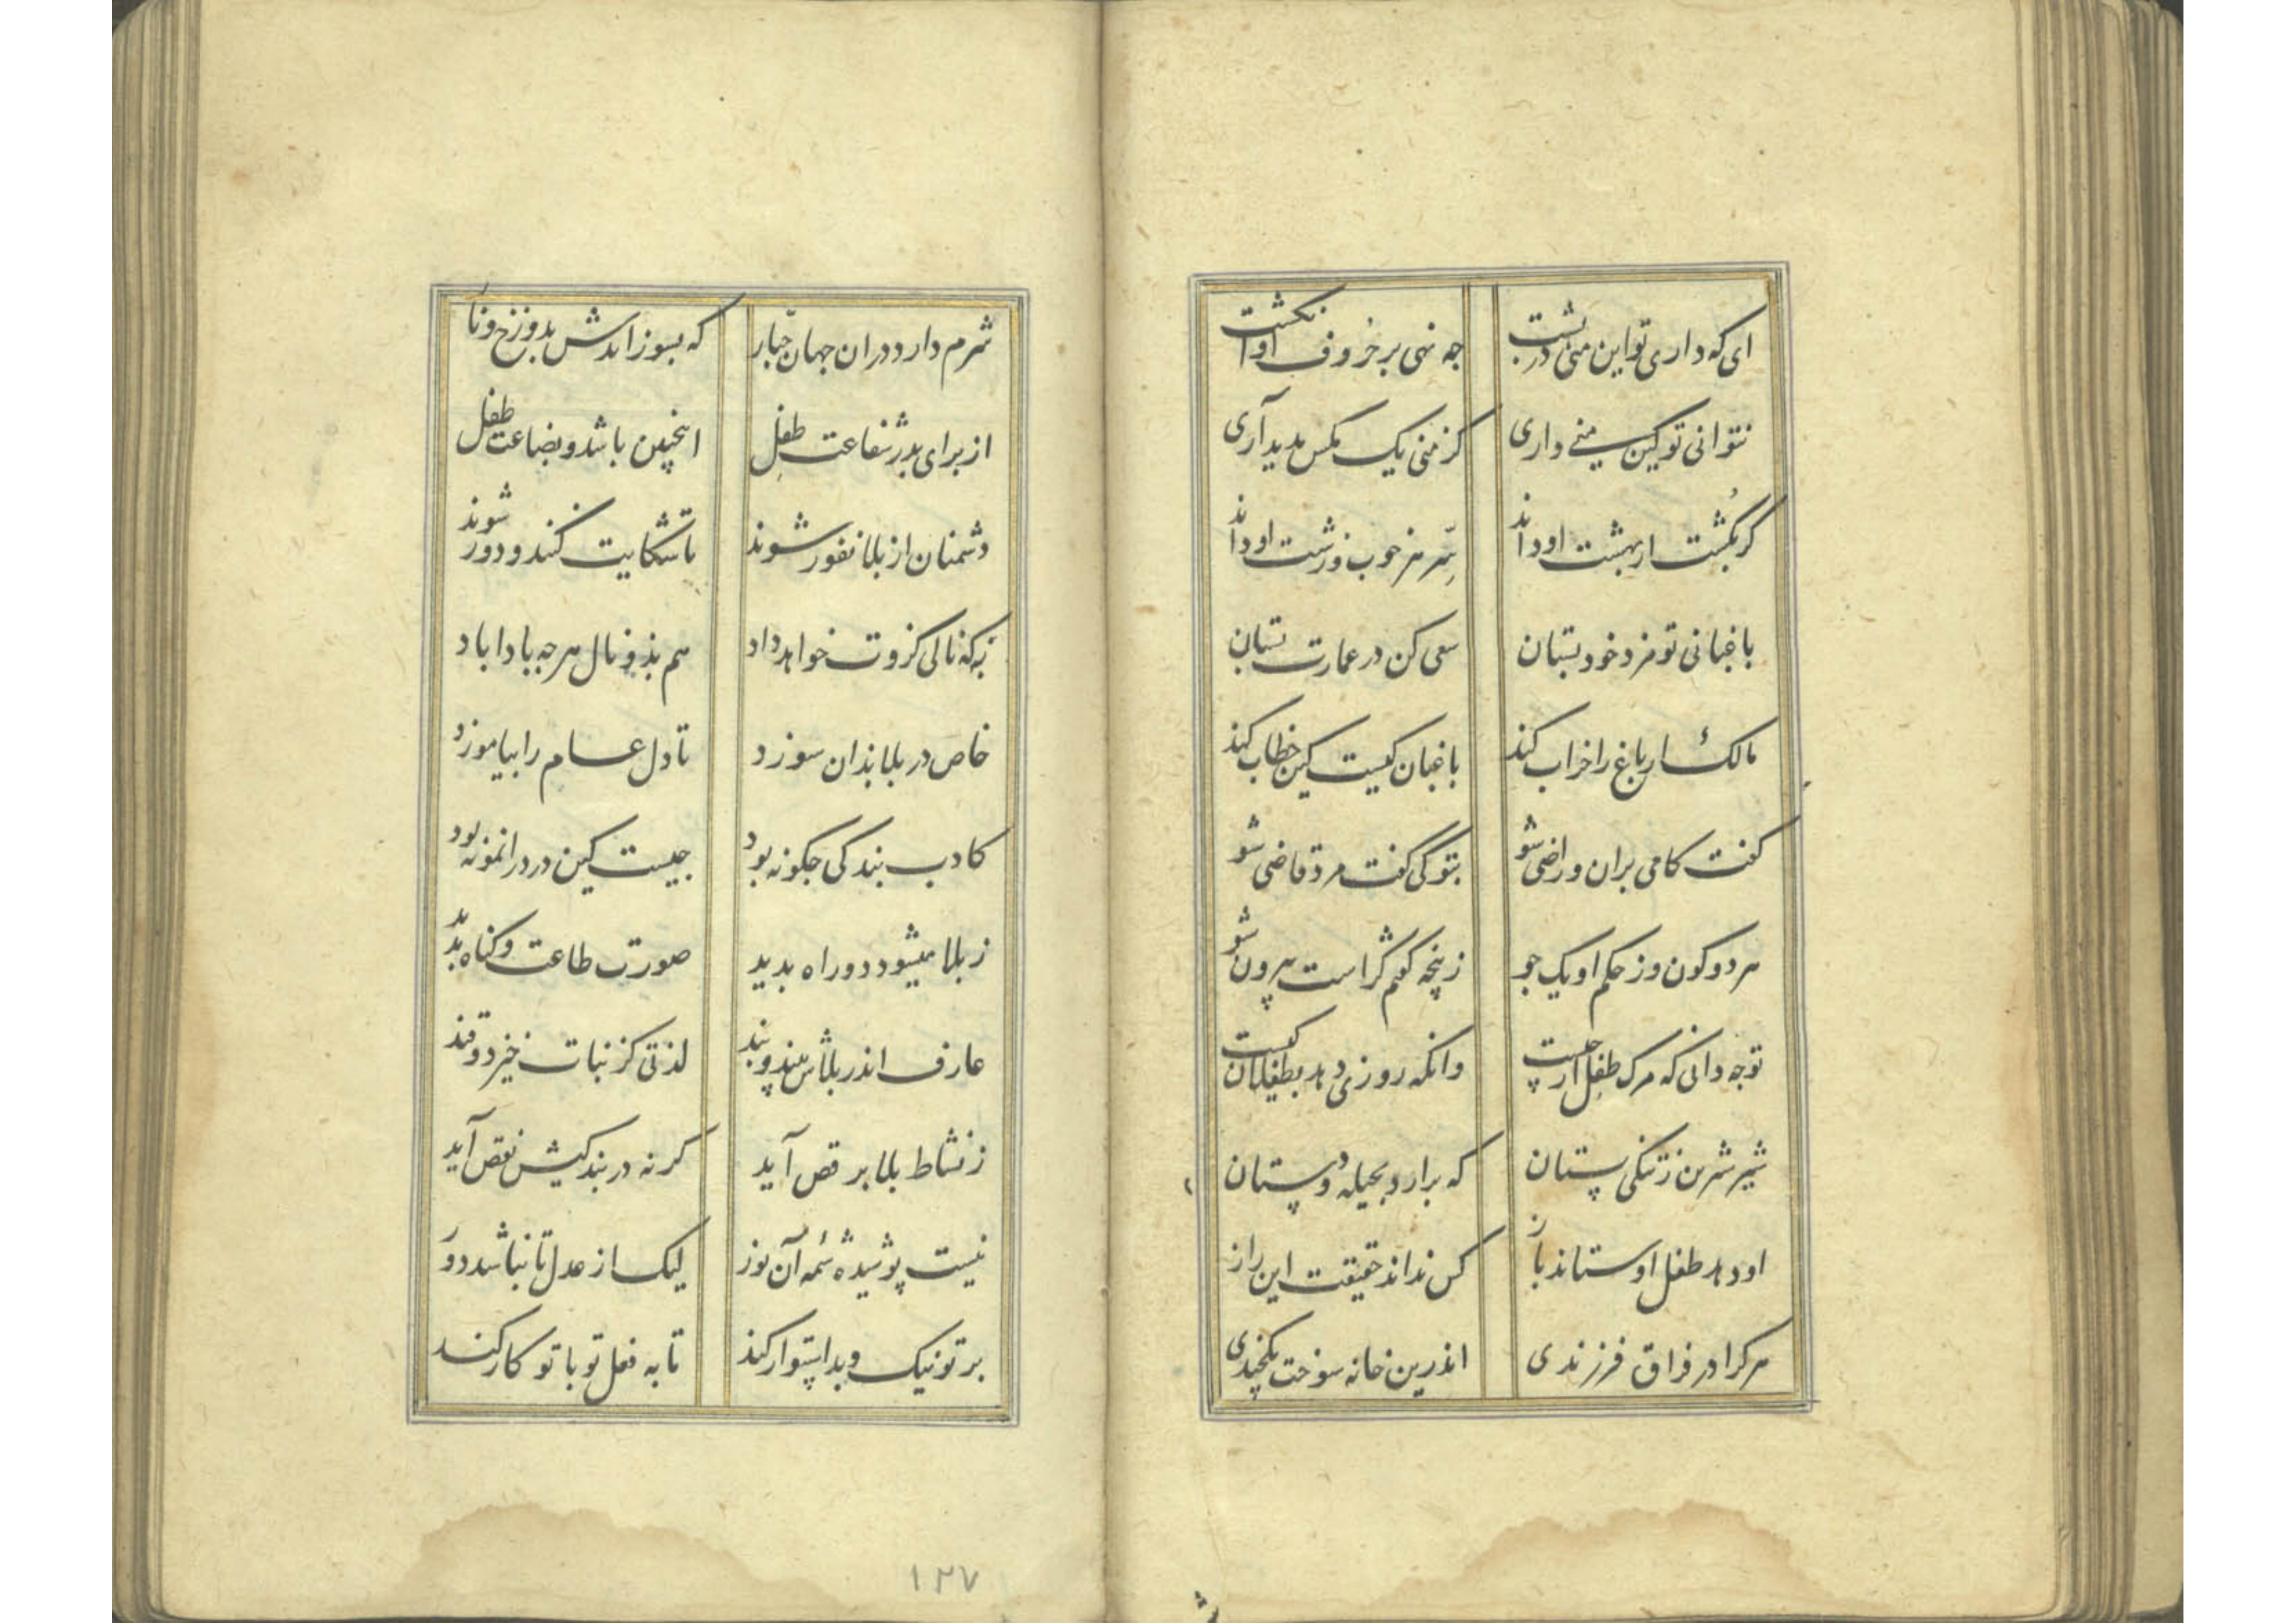 ای که داری تو این منی در پشت
چه نهی بر حروف او انگشت
نتوانی تو کین منی داری
کز منی یک مگس پدید آری
گر بکشت ار بهشت او داند
سر هر خوب و زشت او داند
باغبانی تو مزد خود بستان
سعی کن در عمارت بستان
مالک ار باغ را خراب کند
باغبان کیست کین خطاب کند
گفت کامی بران و راضی شو
بتو کی گفت مرد قاضی شو
هر دو کون وز حکم او یک جو
زنچه کم گر است بیرون شو
تو چه دانی که مرگ طفل از چیست
وانکه روزی دهد بطفلان کیست
شیر شیرین ز تنگی پستان
که برارد بحیله و دستان
او دهد طفل او ستاند باز
کس نداند حقیقت این راز
هر کرا در فراق فرزندی
اندرین خانه سوخت یکچندی
شرم دارد در ان جهان جبّار
که بسوزاندش بدوزخ و نار
از برای پدر شفاعت طفل
اینچنین باشد و بضاعت طفل
دشمنان از بلا نفور شوند
تا شکایت کنند و دور شوند
نه که نالی کزوت خواهد داد
هم بذو نال هر چه بادا باد
خاص در بلا بذان سوزد
تا دل عام را بیاموزد
کادب بندگی چگونه بود
چیست کین درد را نمونه بود
ز بلا میشود دو راه بدید
صورت طاعت و گناه بدید
عارف اندر بلاش بیند و بند
لذتی کز نبات خیزد و قند
ز نشاط بلا برقص آید
گر نه در بندگیش نقص آید
نیست پوشیده شمه آن نور
لیک از عدل تا نباشد دور
بر تو نیک و بد استوار کند
تا به فعل تو با تو کار کند
۱۲۷